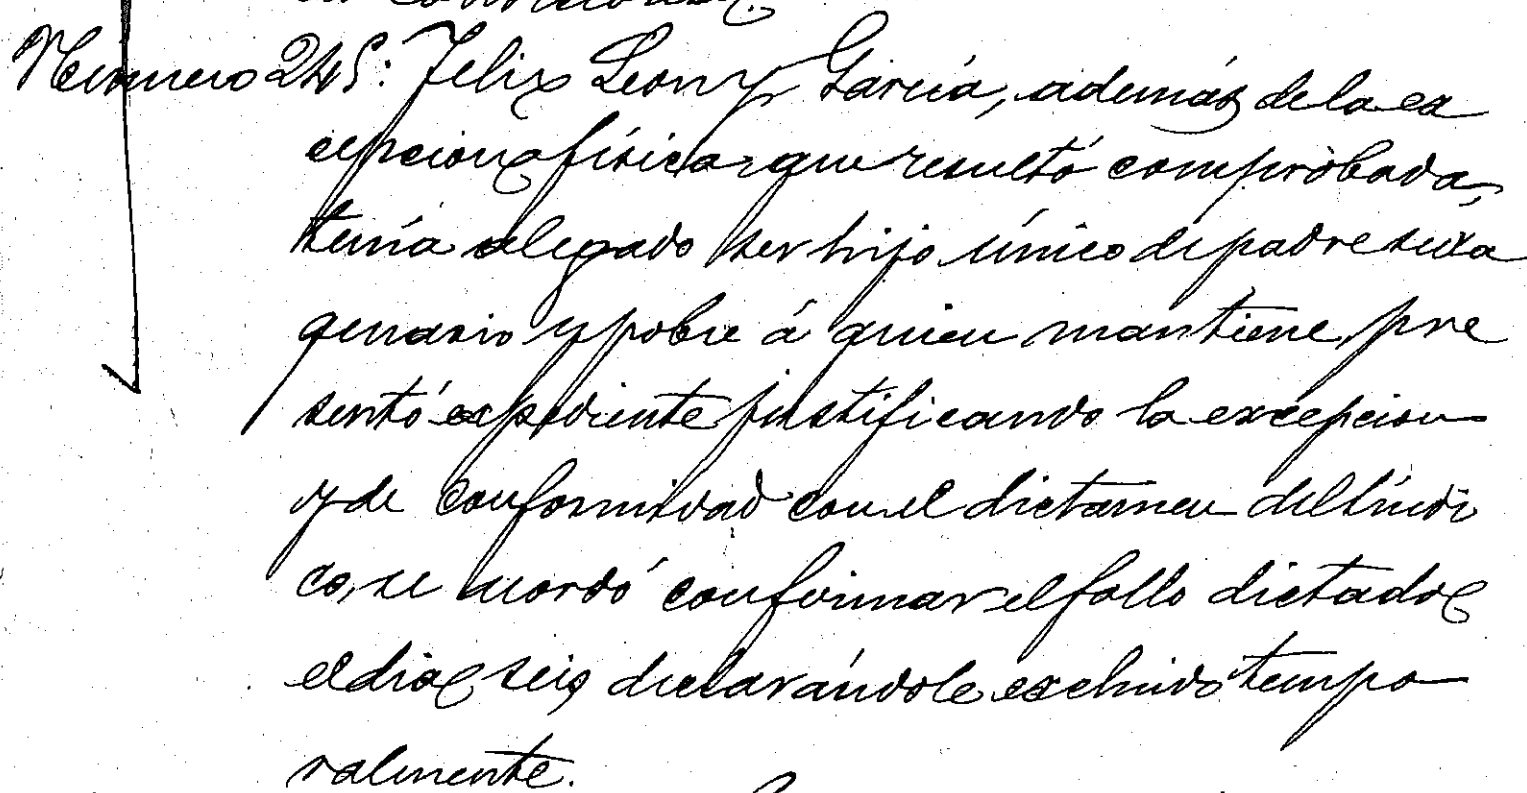 Numero 245: Felix Leon y Garcia, además de la ex
cepcion física que resultó comprobada,
tenía alegado ser hijo único de padre sexa
genario y pobre á quien mantiene, pre
sentó expediente justificando la excepcion
y de conformidad con el dictamen del Síndi
co, se acordó confirmar el fallo dictado
el dia seis declarándole excluido tempo
ralmente.